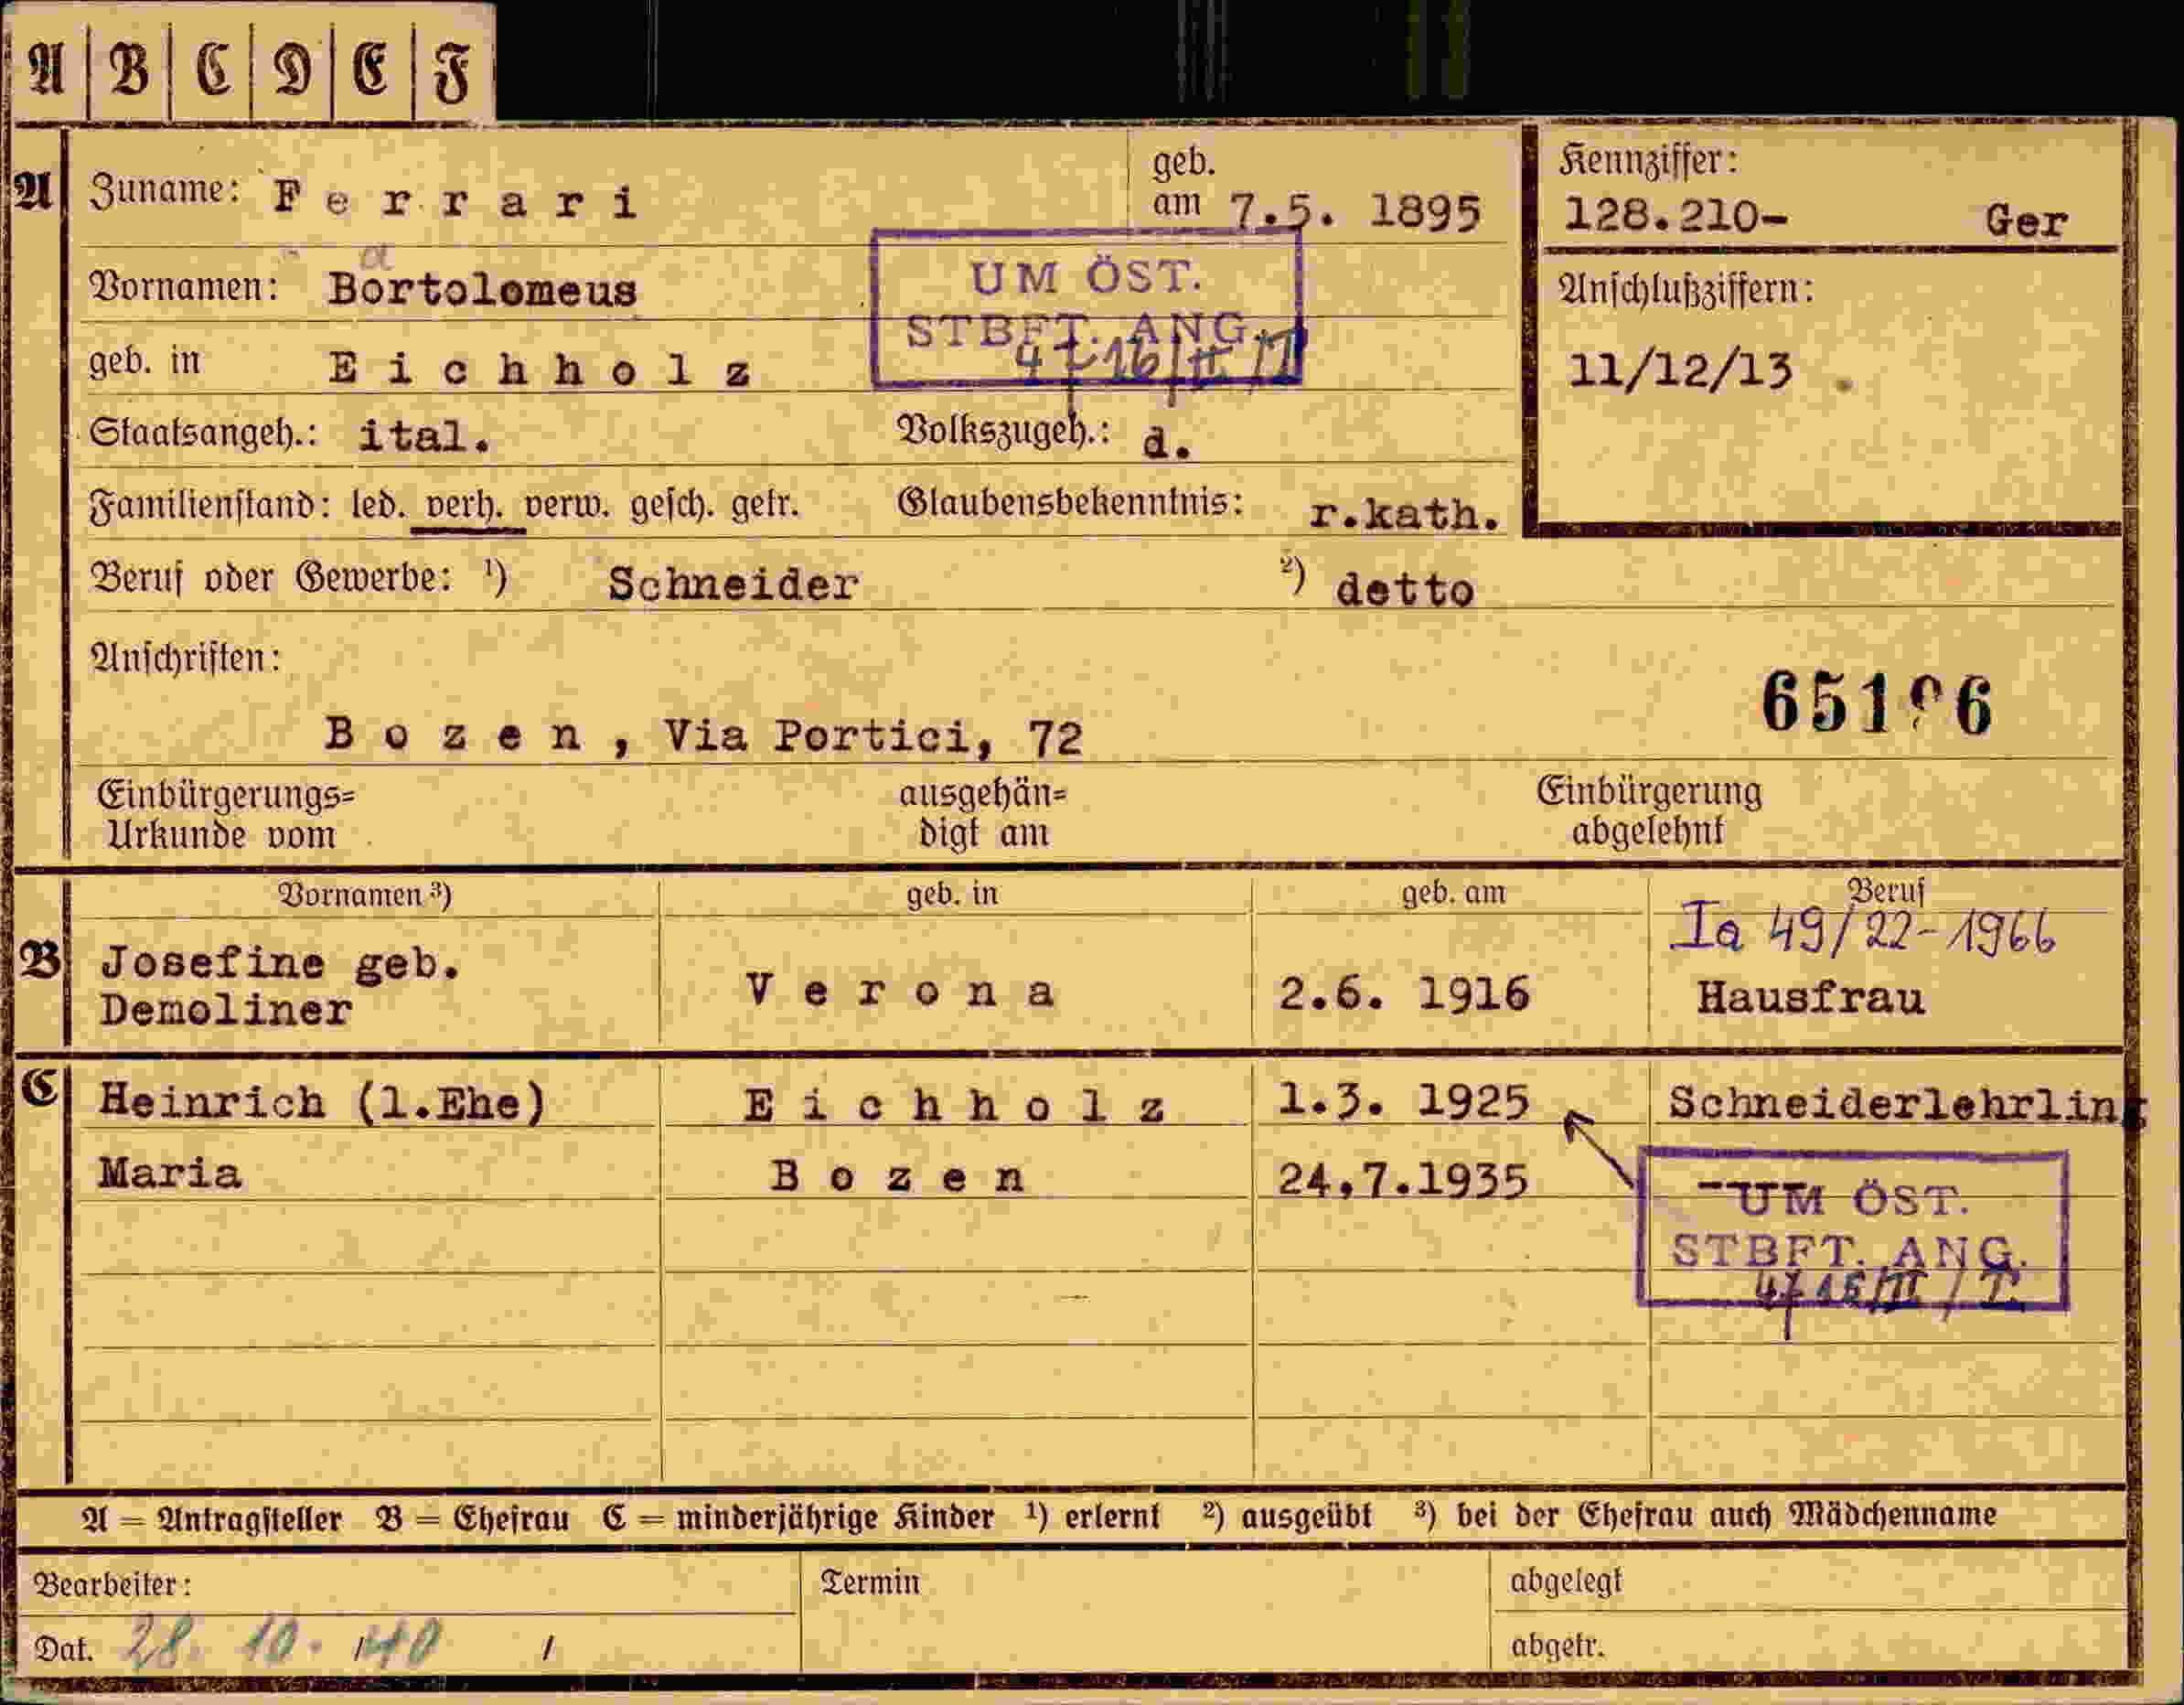 A B C D E F
A
Zuname: Ferrari
geb. am 7.5. 1895
Kennziffer:
128.210- Ger
a
Vornamen: Bortolomeus
UM ÖST.
STBFT. ANG.
Anschlußziffern:
11/12/13
geb. in Eichholz
Staatsangeh.: ital. Volkszugeh.: d.
Familienstand: led. verh. verw. gesch. getr. Glaubensbekenntnis: r.kath.
Beruf oder Gewerbe: ¹) Schneider ²) detto
Anschriften:
Bozen, Via Portici, 72
Einbürgerungs=
Urkunde vom
ausgehän=
digt am
Einbürgerung
abgelehnt
Vornamen ³) geb. in geb. am Beruf
Ia 49/22-1966
B
Josefine geb.
Demoliner
Verona 2.6. 1916 Hausfrau
C
Heinrich (1.Ehe) Eichholz 1.3. 1925 Schneiderlehrling
Maria Bozen 24.7.1935
UM ÖST.
STBFT. ANG.
A = Antragsteller B = Ehefrau C = minderjährige Kinder ¹) erlernt ²) ausgeübt ³) bei der Ehefrau auch Mädchenname
Bearbeiter: Termin abgelegt
Dat. 28. 10. 40 / abgetr.